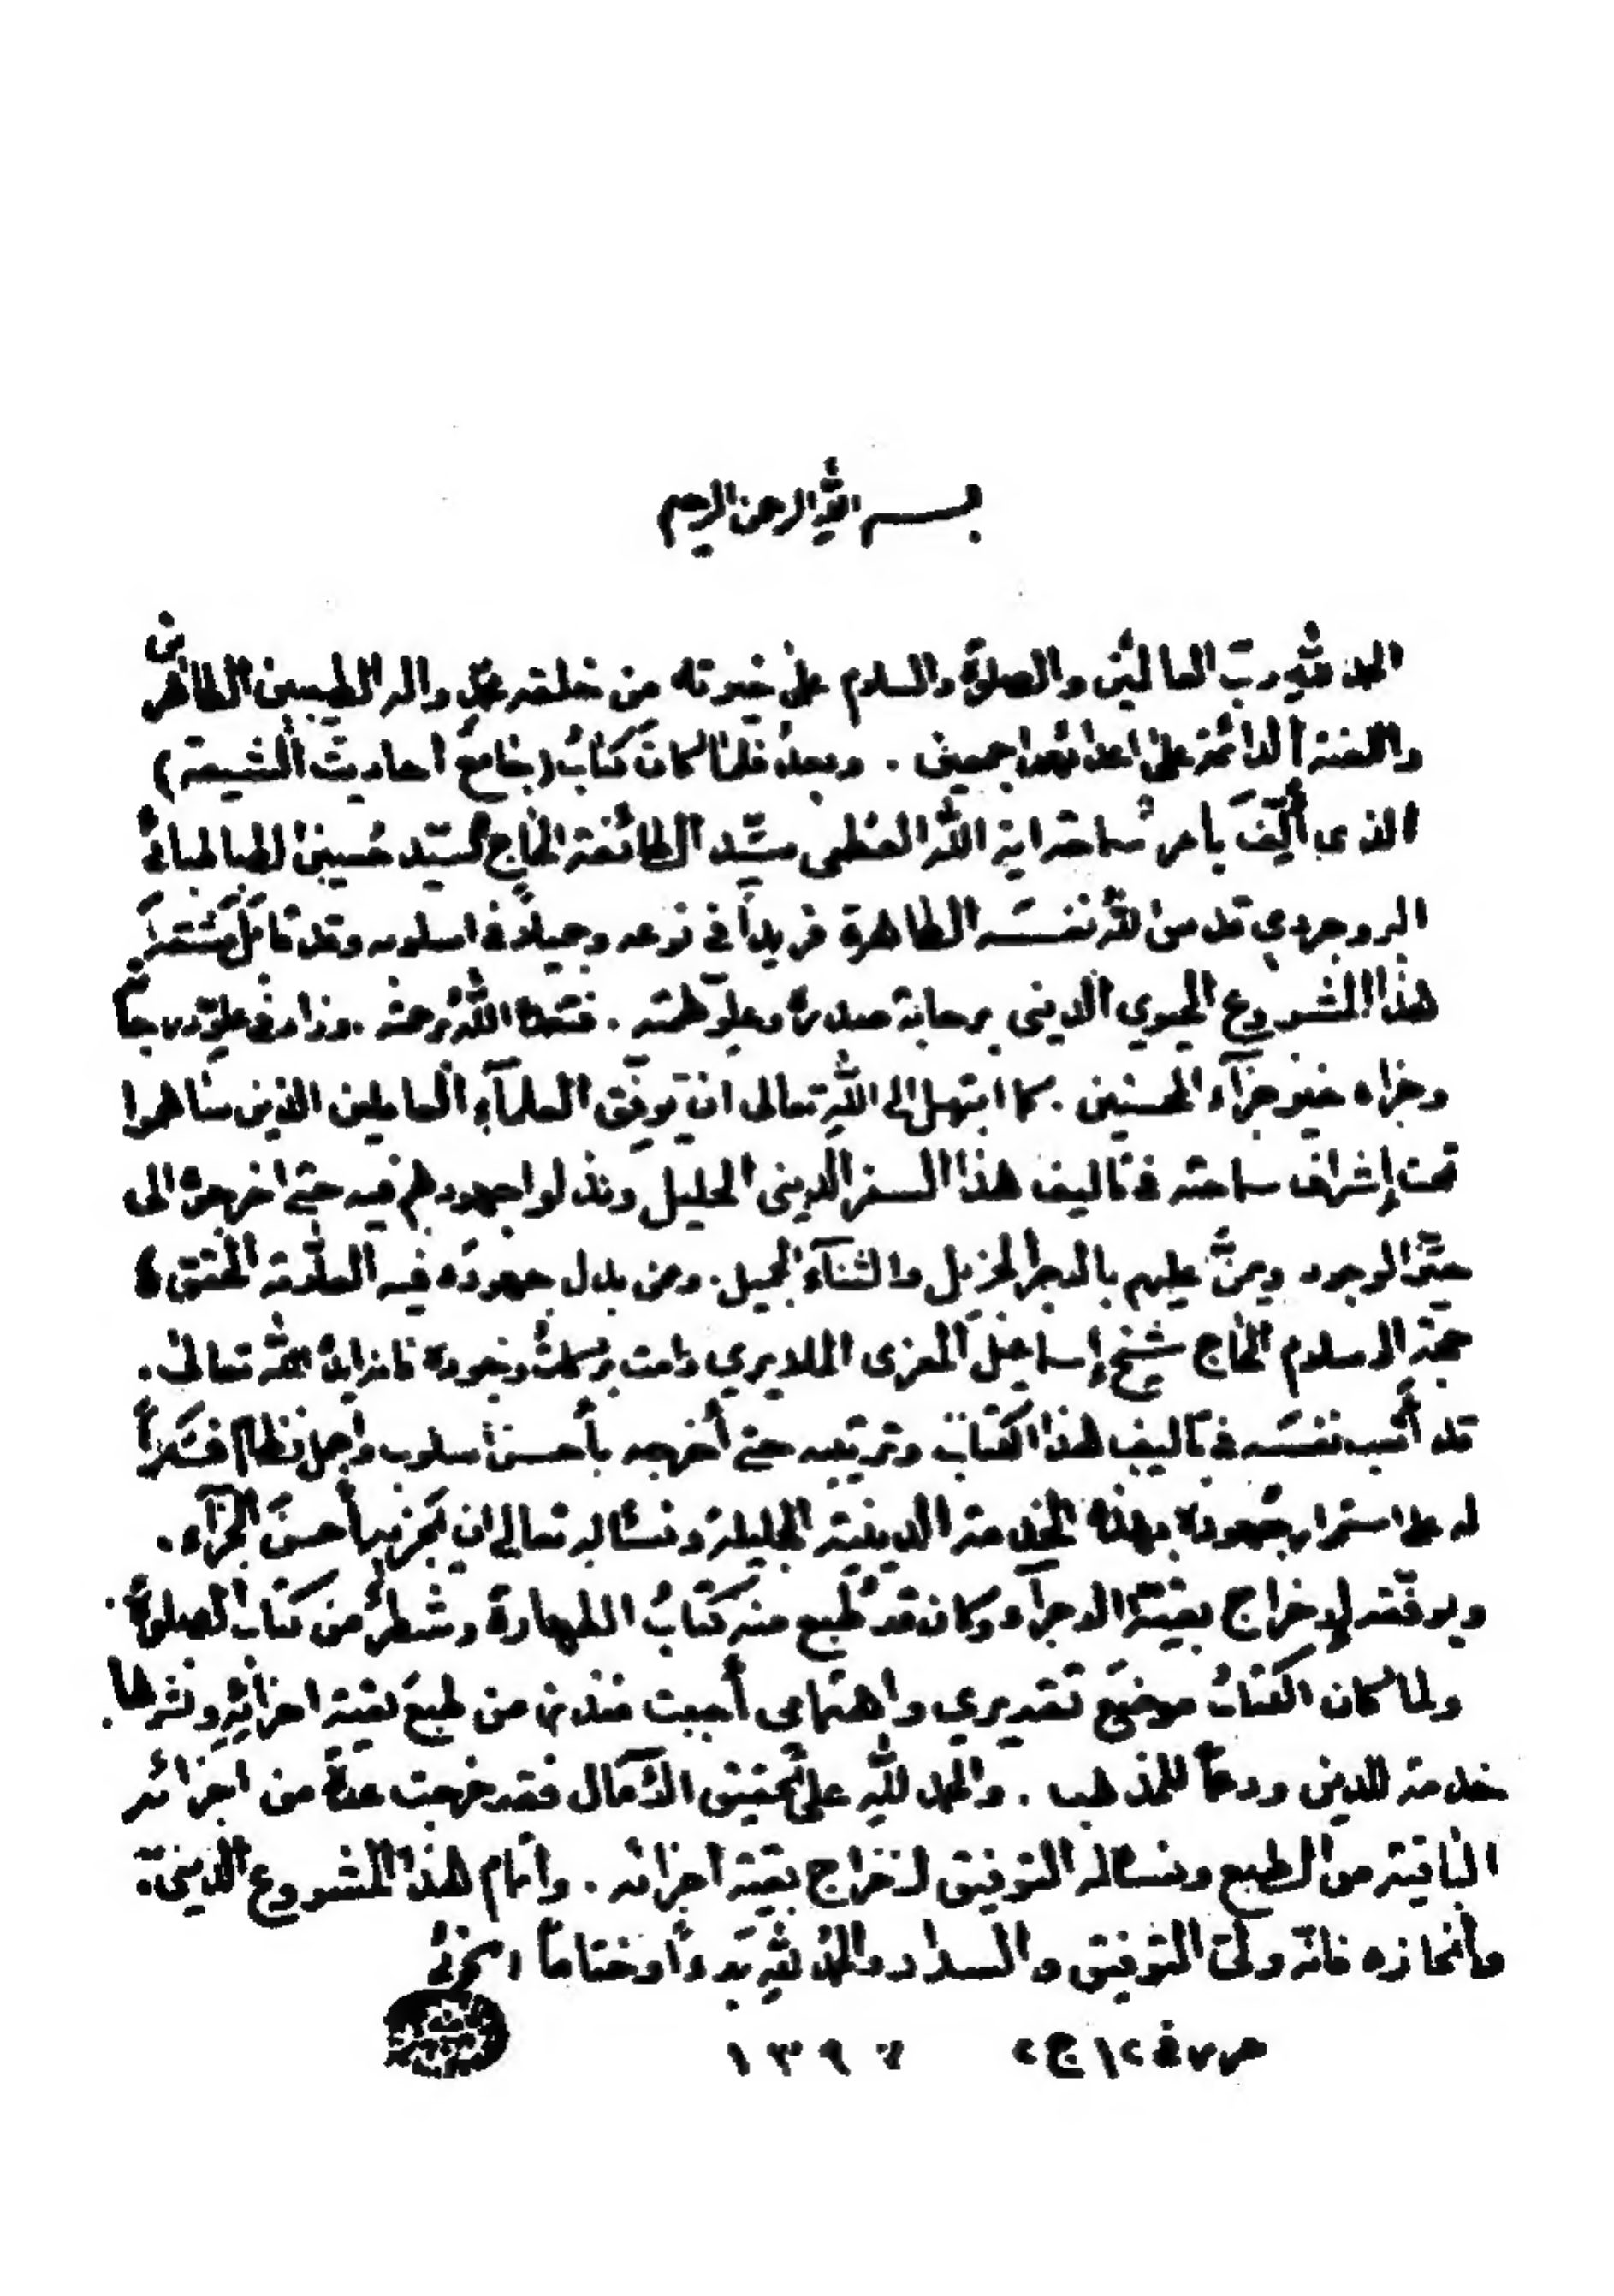 بسم الله الرحمن الرحيم
الحمد لله رب العالمين والصلوة والسلام على خيرته من خلقه محمد واله الطيبين الطاهرين
واللعنة الدائمة على اعدائهم اجمعين . وبعد فلما كان كتاب (جامع احاديث الشيعة)
الذي ألّف بامر سماحة اية الله العظمى سيّد الطائفة الحاج السيّد حسين الطباطبائي
البروجردي قدس الله نفسه الطاهرة فريداً في نوعه وجميلاً في اسلوبه وقد
هذا المشروع الحيوي الديني برحابة صدره وعلوّ همّته . فتغمده الله برحمته . وزاد في علوّ درجاته
وجزاه خير جزآء المحسنين . كما ابتهل الى الله تعالى ان يوفق العلمآء العاملين الذين ساهموا
تحت إشراف سماحته في تاليف هذا السفر الديني الجليل وبذلوا جهودهم فيه حتى اخرجوه الى
حيّز الوجود ويمنّ عليهم بالاجر الجزيل والثنآء الجميل . وممن بذل جهوده فيه العلّامة المحقق
حجة الاسلام الحاج شيخ إسماعيل المعزى الملايري دامت بركات وجوده فانه ايده الله تعالى .
قد أتعب نفسه في تاليف هذا الكتاب وترتيبه حتى أخرجه بأحسن اسلوب واجمل نظام فشكراً
له على استمرار جهوده بهذه الخدمة الدينية الجليلة ونسئاله تعالى ان يجزيه أحسن الجزآء .
ويوفّقه لإخراج بقيّة الاجزآء وكان قد طبع منه كتاب الطهارة وشطر من كتاب الصلوة .
ولما كان الكتاب موضع تقديري واهتمامي أحببت منذ زمن طبع بقية اجزائه ونشرها .
خدمة للدين ودعماً للمذهب . والحمد لله على تحقيق الآمال فقد خرجت عدة من اجزائه
الباقية من الطبع ونسئاله التوفيق لاخراج بقيّة اجزائه . واتمام هذا المشروع الديني .
وانجازه فانّه ولي التوفيق والسداد والحمد لله بدءاً وختاماً الخوئي
في ١٢ ج٢ ١٣٩٦